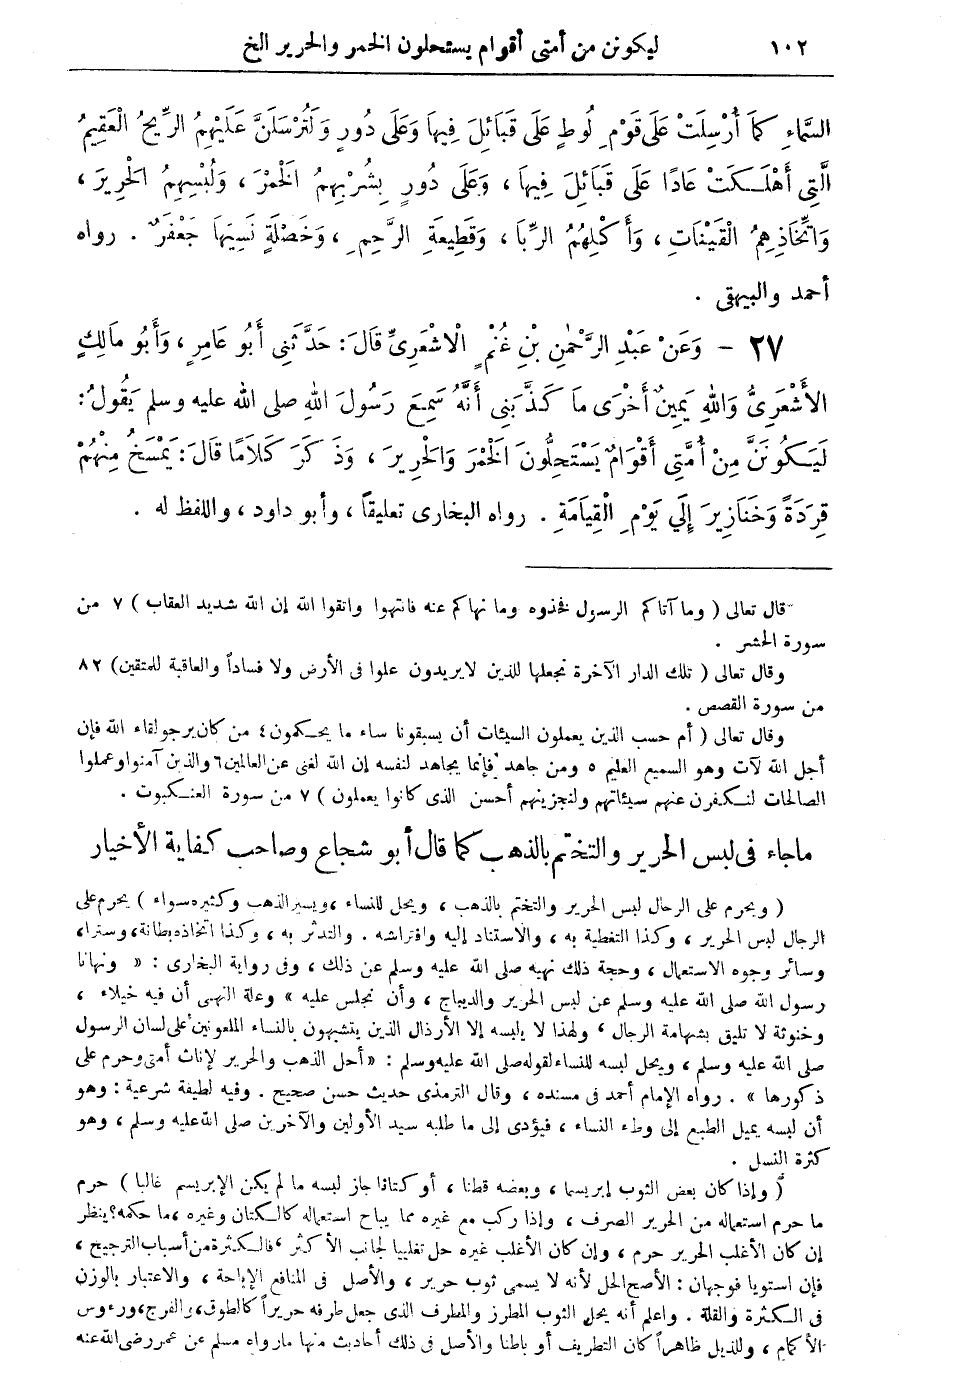 ١٠٢ ليكونن من أمتى أقوام يستحلون الخمر والحرير الخ
السَّمَاءِ كَمَا أُرْسِلَتْ عَلَى قَوْمِ لُوطٍ عَلَى قَبَائِلَ فِيهَا وَعَلَى دُورٍ وَلَتُرْسَلَنَّ عَلَيْهِمُ الرِّيحُ الْعَقِيمُ
الَّتِى أَهْلَكَتْ عَادًا عَلَى قَبَائِلَ فِيهَا ، وَعَلَى دُورٍ بِشُرْبِهِمُ الْخَمْرَ ، وَلُبْسِهِمُ الْحَرِيرَ ،
وَاتِّخَاذِهِمُ الْقَيْنَاتِ ، وَأَكْلِهِمُ الرِّبَا ، وَقَطِيعَةِ الرَّحِمِ ، وَخَصْلَةٍ نَسِيَهَا جَعْفَرٌ . رواه
أحمد والبيهقى .
٢٧ – وَعَنْ عَبْدِ الرَّحْمٰنِ بْنِ غُنْمٍ الْاشْعَرِىِّ قَالَ : حَدَّثَنِى أَبُو عَامِرٍ ، وَأَبُو مَالِكٍ
الأَشْعَرِىُّ وَاللهِ يَمِينٌ أُخْرَى مَا كَذَبَنِى أَنَّهُ سَمِعَ رَسُولَ اللهِ صلى الله عليه وسلم يَقُولُ :
لَيَكُونَنَّ مِنْ أُمَّتِى أَقْوَامٌ يَسْتَحِلُّونَ الْخَمْرَ وَالْحَرِيرَ ، وَذَكَرَ كَلَامًا قَالَ : يَمْسَخُ مِنْهُمْ
قِرَدَةً وَخَنَازِيرَ إِلَى يَوْمِ الْقِيَامَةِ . رواه البخارى تعليقاً ، وأبو داود ، واللفظ له .
قال تعالى ( وما آتاكم الرسول فخذوه وما نهاكم عنه فانتهوا واتقوا الله إن الله شديد العقاب ) ٧ من
سورة الحشر .
وقال تعالى ( تلك الدار الآخرة نجعلها للذين لايريدون علوا فى الأرض ولا فساداً والعاقبة للمتقين ) ٨٢
من سورة القصص .
وقال تعالى ( أم حسب الذين يعملون السيئات أن يسبقونا ساء ما يحكمون ٤ من كان يرجو لقاء الله فإن
أجل الله لآت وهو السميع العليم ٥ ومن جاهد فإنما يجاهد لنفسه إن الله لغنى عن العالمين ٦ والذين آمنوا وعملوا
الصالحات لنكفرن عنهم سيئاتهم ولنجزينهم أحسن الذى كانوا يعملون ) ٧ من سورة العنكبوت .
ماجاء فى لبس الحرير والتختم بالذهب كما قال أبو شجاع وصاحب كفاية الأخيار
( ويحرم على الرجال لبس الحرير والتختم بالذهب ، ويحل للنساء ، ويسير الذهب وكثيره سواء ) يحرم على
الرجال لبس الحرير ، وكذا التغطية به ، والاستناد إليه وافتراشه . والتدثر به ، وكذا اتخاذه بطانة ، وسترا ،
وسائر وجوه الاستعمال ، وحجة ذلك نهيه صلى الله عليه وسلم عن ذلك ، وفى رواية البخارى : « ونهانا
رسول الله صلى الله عليه وسلم عن لبس الحرير والديباج ، وأن نجلس عليه » وعلة النهى أن فيه خيلاء ،
وخنوثة لا تليق بشهامة الرجال ، ولهذا لا يلبسه إلا الأرذال الذين يتشبهون بالنساء الملعونين على لسان الرسول
صلى الله عليه وسلم ، ويحل لبسه للنساء لقوله صلى الله عليه وسلم : « أحل الذهب والحرير لإناث أمتى وحرم على
ذكورها » . رواه الإمام أحمد فى مسنده ، وقال الترمذى حديث حسن صحيح . وفيه لطيفة شرعية : وهو
أن لبسه يميل الطبع إلى وطء النساء ، فيؤدى إلى ما طلبه سيد الأولين والآخرين صلى الله عليه وسلم ، وهو
كثرة النسل .
( وإذا كان بعض الثوب إبريسما ، وبعضه قطنا ، أو كتانا جاز لبسه ما لم يكن الإبريسم غالبا ) حرم
ما حرم استعماله من الحرير الصرف ، وإذا ركب مع غيره مما يباح استعماله كالكتان وغيره ، ما حكمه ؟ ينظر
إن كان الأغلب الحرير حرم ، وإن كان الأغلب غيره حل تغليبا لجانب الأكثر ، فالكثرة من أسباب الترجيح ،
فإن استويا فوجهان : الأصح الحل لأنه لا يسمى ثوب حرير ، والأصل فى المنافع الإباحة ، والاعتبار بالوزن
فى الكثرة والقلة . واعلم أنه يحل الثوب المطرز والمطرف الذى جعل طرفه حريراً كالطوق ، والفرج ، ورءوس
الأكمام ، وللذيل ظاهراً كان التطريف أو باطنا والأصل فى ذلك أحاديث منها مارواه مسلم عن عمر رضى الله عنه